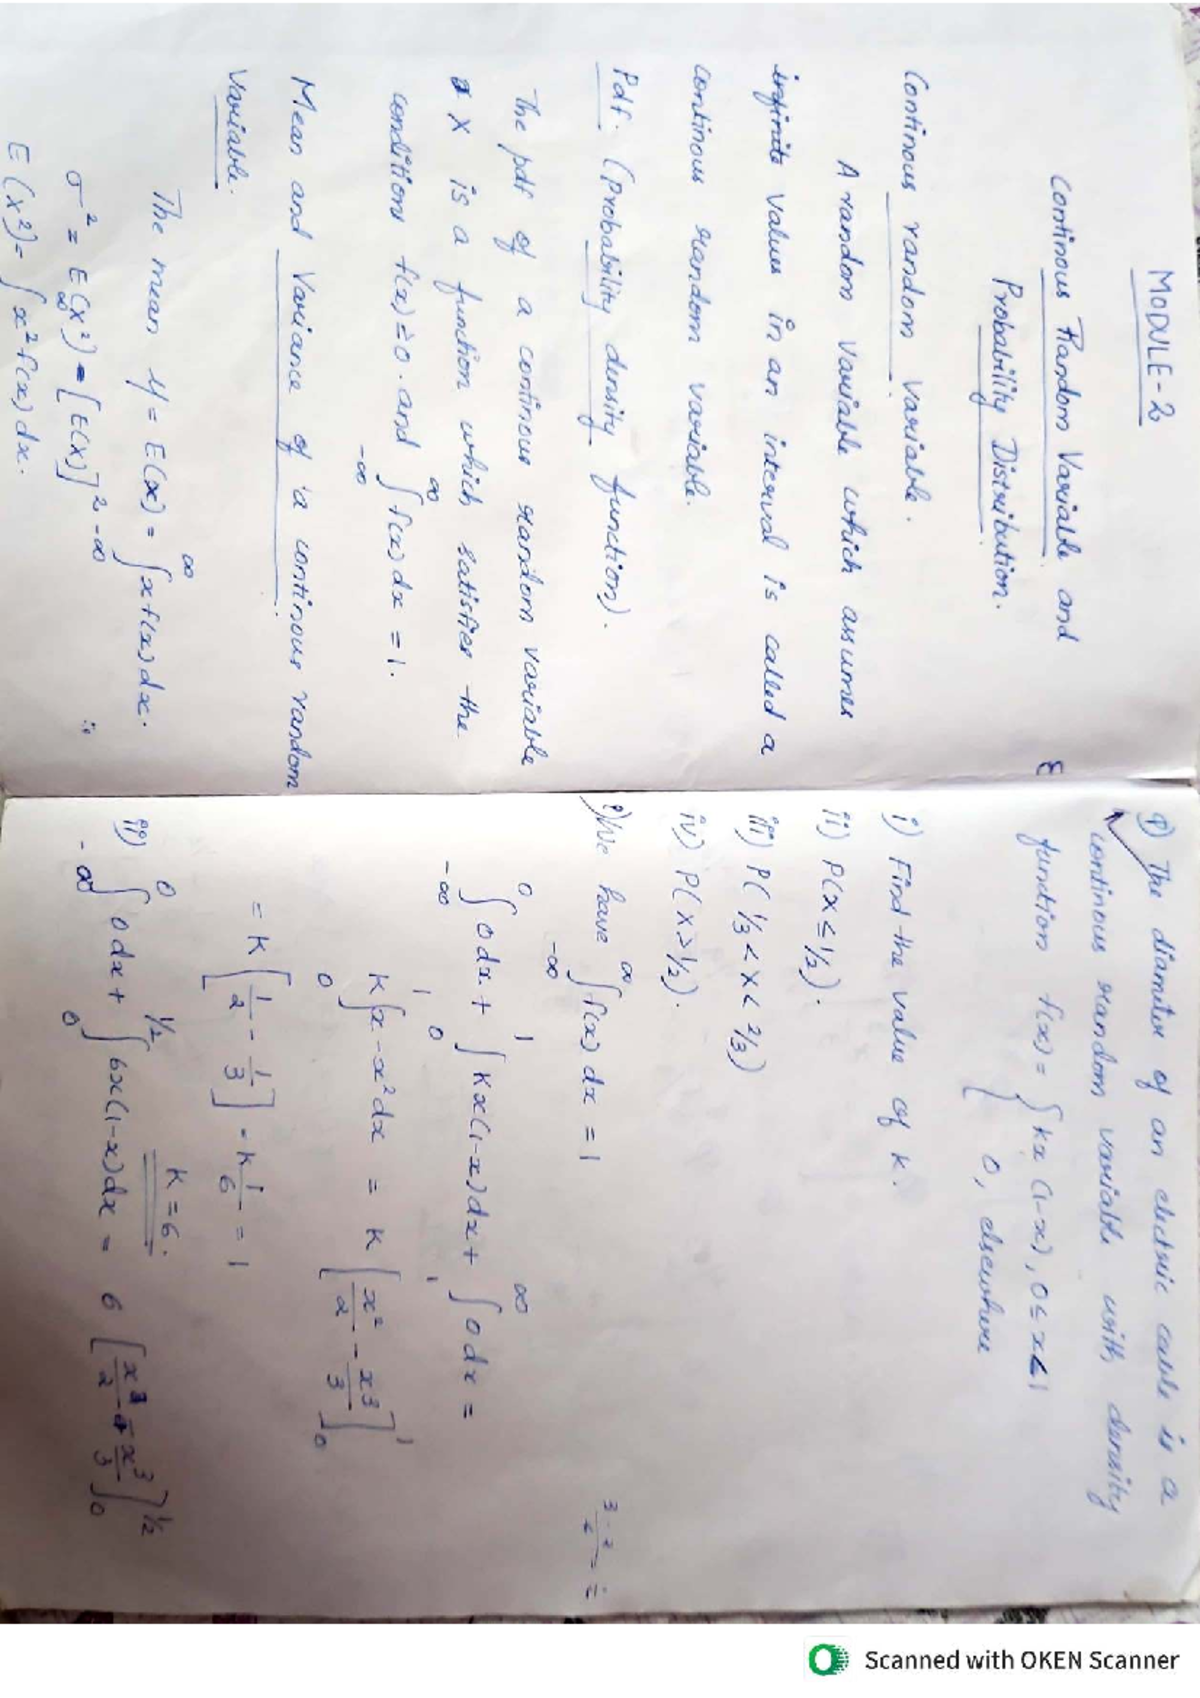 MODULE-2
Continous Random Variable and
Probability Distribution.
Continous random variable.
A random variable which assumes
infinite values in an interval is called a
continous random variable.
Pdf. (Probability density function).
The pdf of a continous random variable
X is a function which satisfies the
conditions f(x) ≥ 0. and ∫_{-∞}^{∞} f(x) dx = 1.
Mean and Variance of a continous random
variable.
The mean μ = E(x) = ∫_{-∞}^{∞} x f(x) dx.
σ² = E(x²) - [E(x)]²
E(x²) = ∫_{-∞}^{∞} x² f(x) dx.
1) The diameter of an electric cable is a
continous random variable with density
function f(x) = { kx(1-x), 0 ≤ x < 1
0, elsewhere
i) Find the value of k.
ii) P(x ≤ 1/2).
iii) P(1/3 < x < 2/3)
iv) P(x > 1/2).
i) We have ∫_{-∞}^{∞} f(x) dx = 1
∫_{-∞}^{0} 0 dx + ∫_{0}^{1} Kx(1-x) dx + ∫_{1}^{∞} 0 dx =
K ∫_{0}^{1} x - x² dx = K [x²/2 - x³/3]_{0}^{1}
= K [1/2 - 1/3] = K 1/6 = 1
K = 6.
ii) ∫_{-∞}^{0} 0 dx + ∫_{0}^{1/2} 6x(1-x) dx = 6 [x²/2 - x³/3]_{0}^{1/2}
Scanned with OKEN Scanner